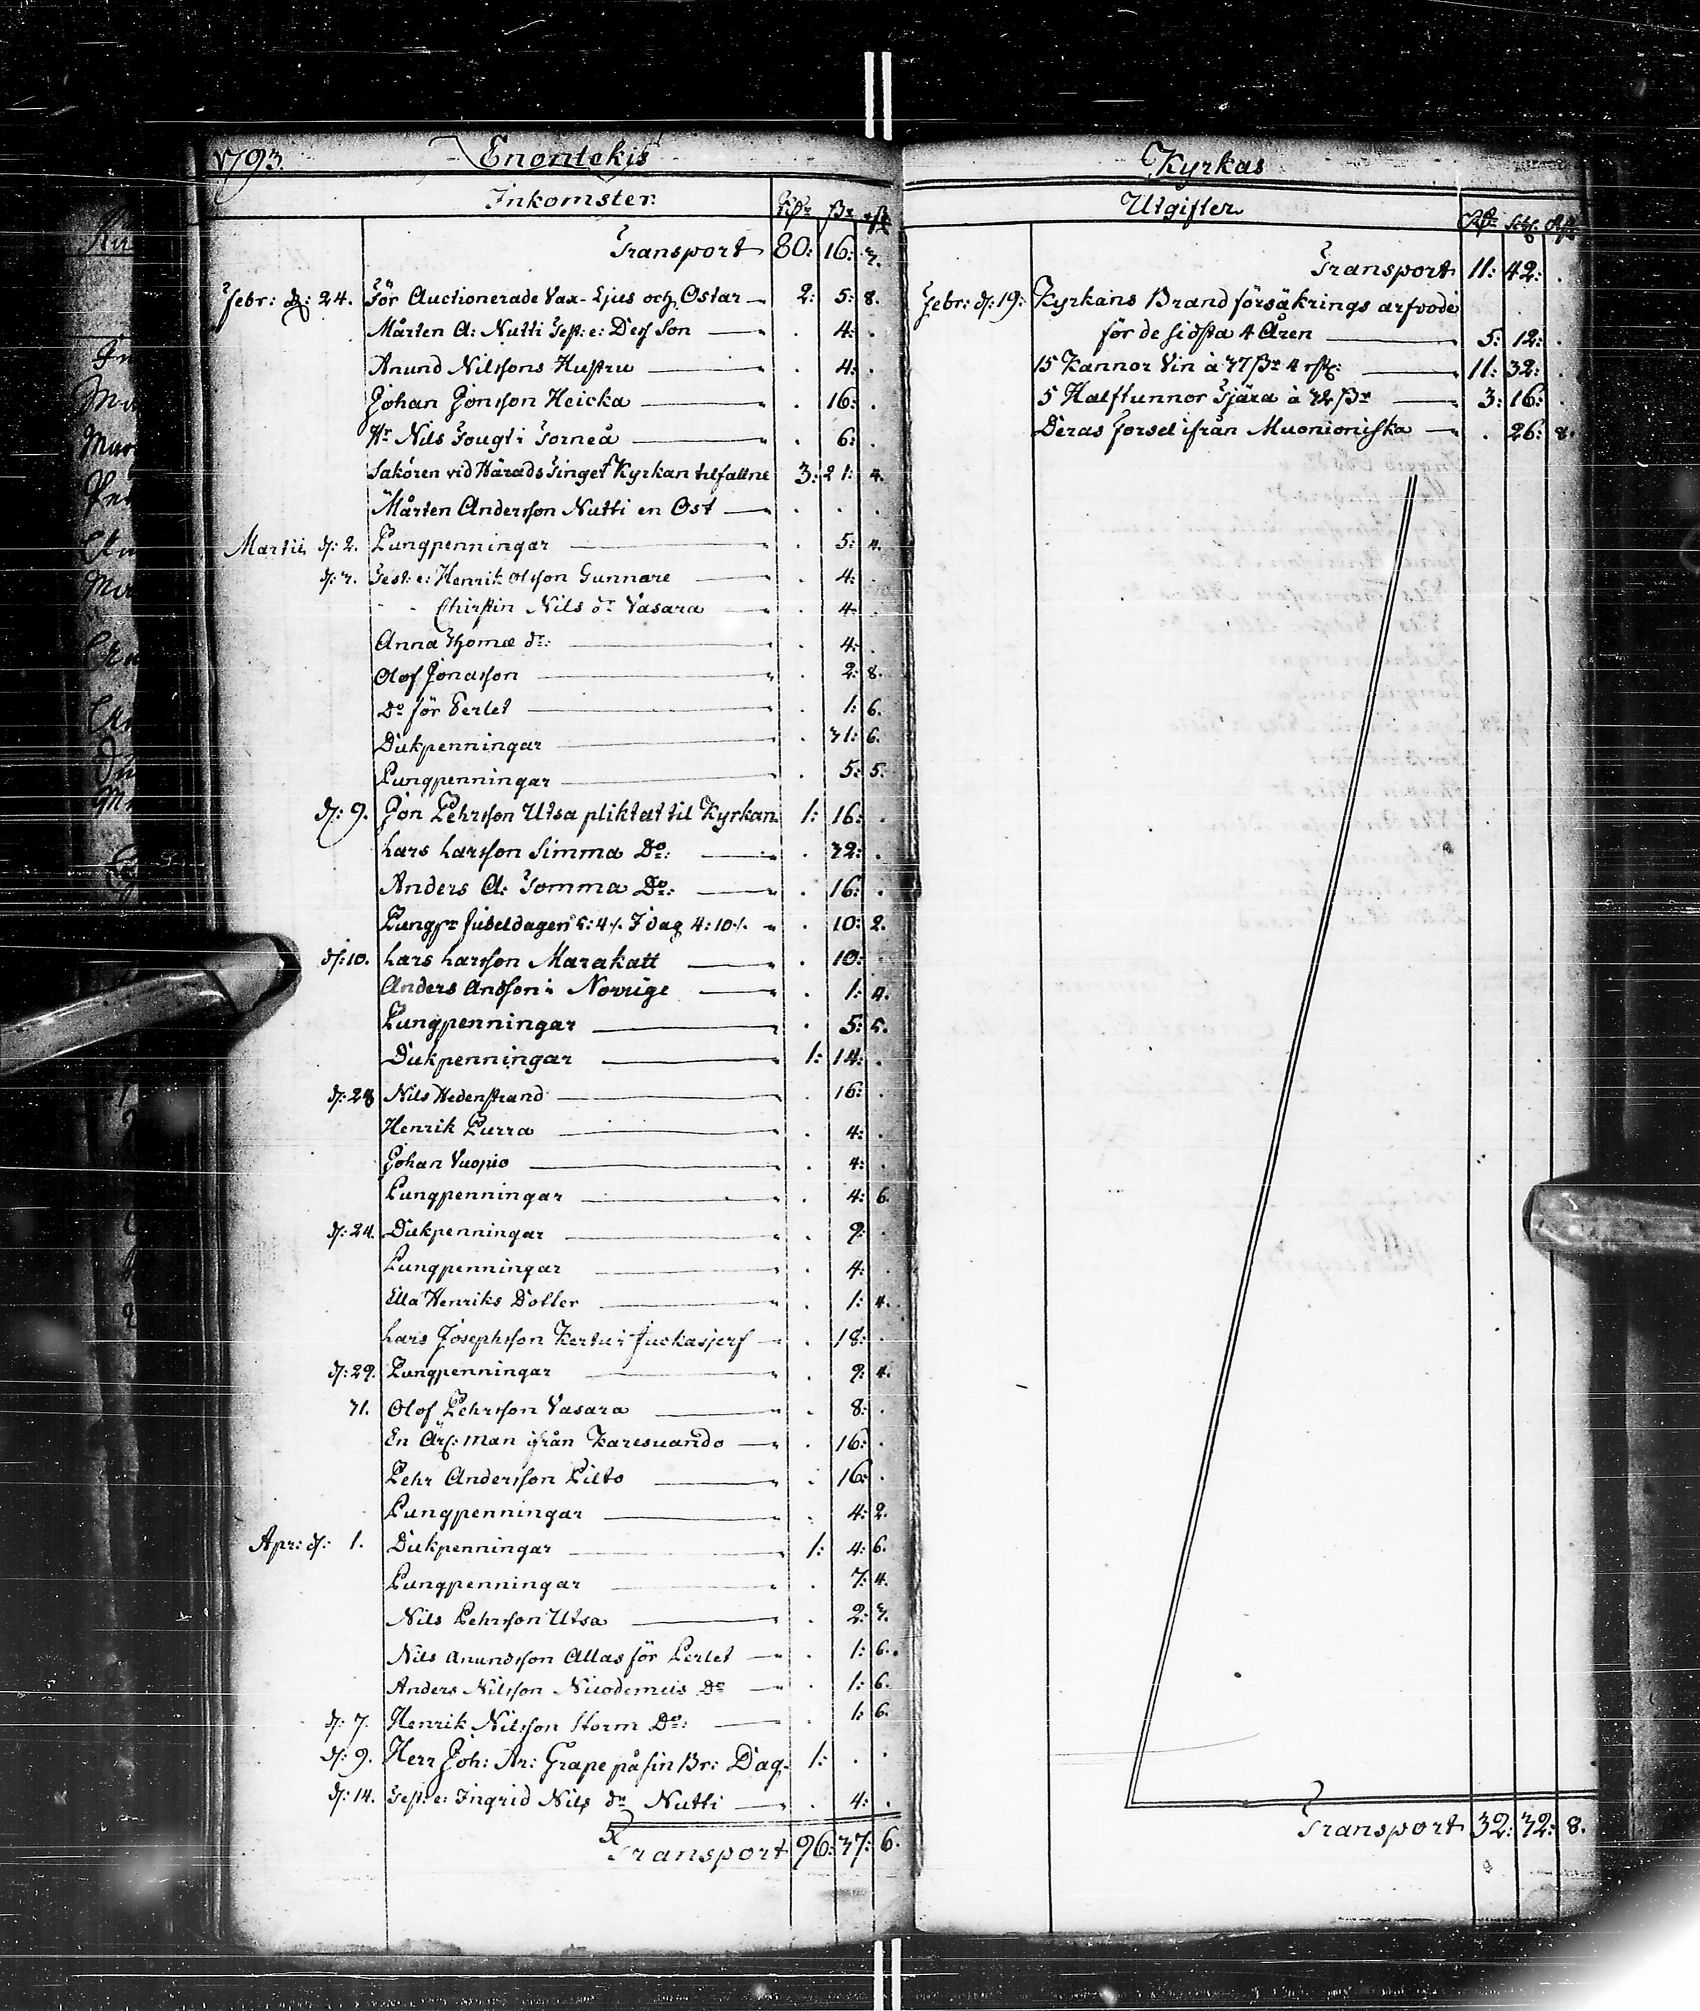 1793. Enontekis
Inkomster. Rdr ßr rst
Transport 80: 16: 3.
Febr: d: 24. För Auctionerade Vax-Ljus och Ostar 2: 5: 8.
Mårten A: Nutti Test: e: Dess Son . 4: .
Anund Nilssons Hustru . 4: .
Johan Jonsson Heicka . 16: .
Hr Nils Fougt i Torneå . 6: .
Sakören vid Härads Tinget Kyrkan tilfallne 3: 21: 4.
Mårten Andersson Nutti en Ost . . .
Martii d: 2. Pungpenningar . 5: 4.
d: 3. Test: e: Henrik Olsson Gunnare . 4: .
- - Chirstin Nils dr Vasara . 4: .
Anna Thomæ dr: . 4: .
Olof Jonasson . 2: 8.
Do för Perlet . 1: 6.
Dukpenningar . 31: 6.
Pungpenningar . 5: 5.
d: 9. Jon Pehrsson Utsa pliktat til Kyrkan 1: 16: .
Lars Larsson Simma Do: . 32: .
Anders A: Tomma Do: . 16: .
Pungpr Jubeldagen 5: 4/. I dag 4: 10/. . 10: 2.
d: 10. Lars Larsson Marakatt . 10: .
Anders Andsson i Norrige . 1: 4.
Pungpenningar . 5: 5.
Dukpenningar 1: 14: .
d: 23 Nils Hedenstrand . 16: .
Henrik Purra . 4: .
Johan Vuopio . 4: .
Pungpenningar . 4: 6.
d: 24. Dukpenningar . 9: .
Pungpenningar . 4: .
Ella Henriks Dotter . 1: 4.
Lars Josephsson Kertu i Juckasjerf . 18: .
d: 29. Pungpenningar . 9: 4.
31. Olof Pehrsson Vasara . 8: .
En Ärl: man ifrån Karesuando . 16: .
Pehr Andersson Pilto . 16: .
Pungpenningar . 4: 2.
Apr: d: 1. Dukpenningar 1: 4: 6.
Pungpenningar . 7: 4.
Nils Pehrsson Utsa . 2: 3.
Nils Anundsson Allas för Perlet . 1: 6.
Anders Nilsson Nicodemus Do . 1: 6.
d: 7. Henrik Nilsson Storm Do: . 1: 6.
d: 9. Herr Joh: Ar: Grape på sin Br: Dag 1: . .
d: 14. Test: e: Ingrid Nils dr Nutti . 4: .
Transport 96: 37: 6.
Kyrkas
Utgifter Rdr sk: rst
Transport 11: 42: .
Febr: d: 19: Kyrkans Brand försäkrings arfvode
för de sidsta 4 Åren 5: 12: .
15 Kannor Vin à 37 ßr 4 rst: 11: 32: .
5 Halftunnor Tjära à 32 ßr 3: 16: .
Deras forsel ifrån Muonioniska . 26: 8.
Transport 32: 32: 8.